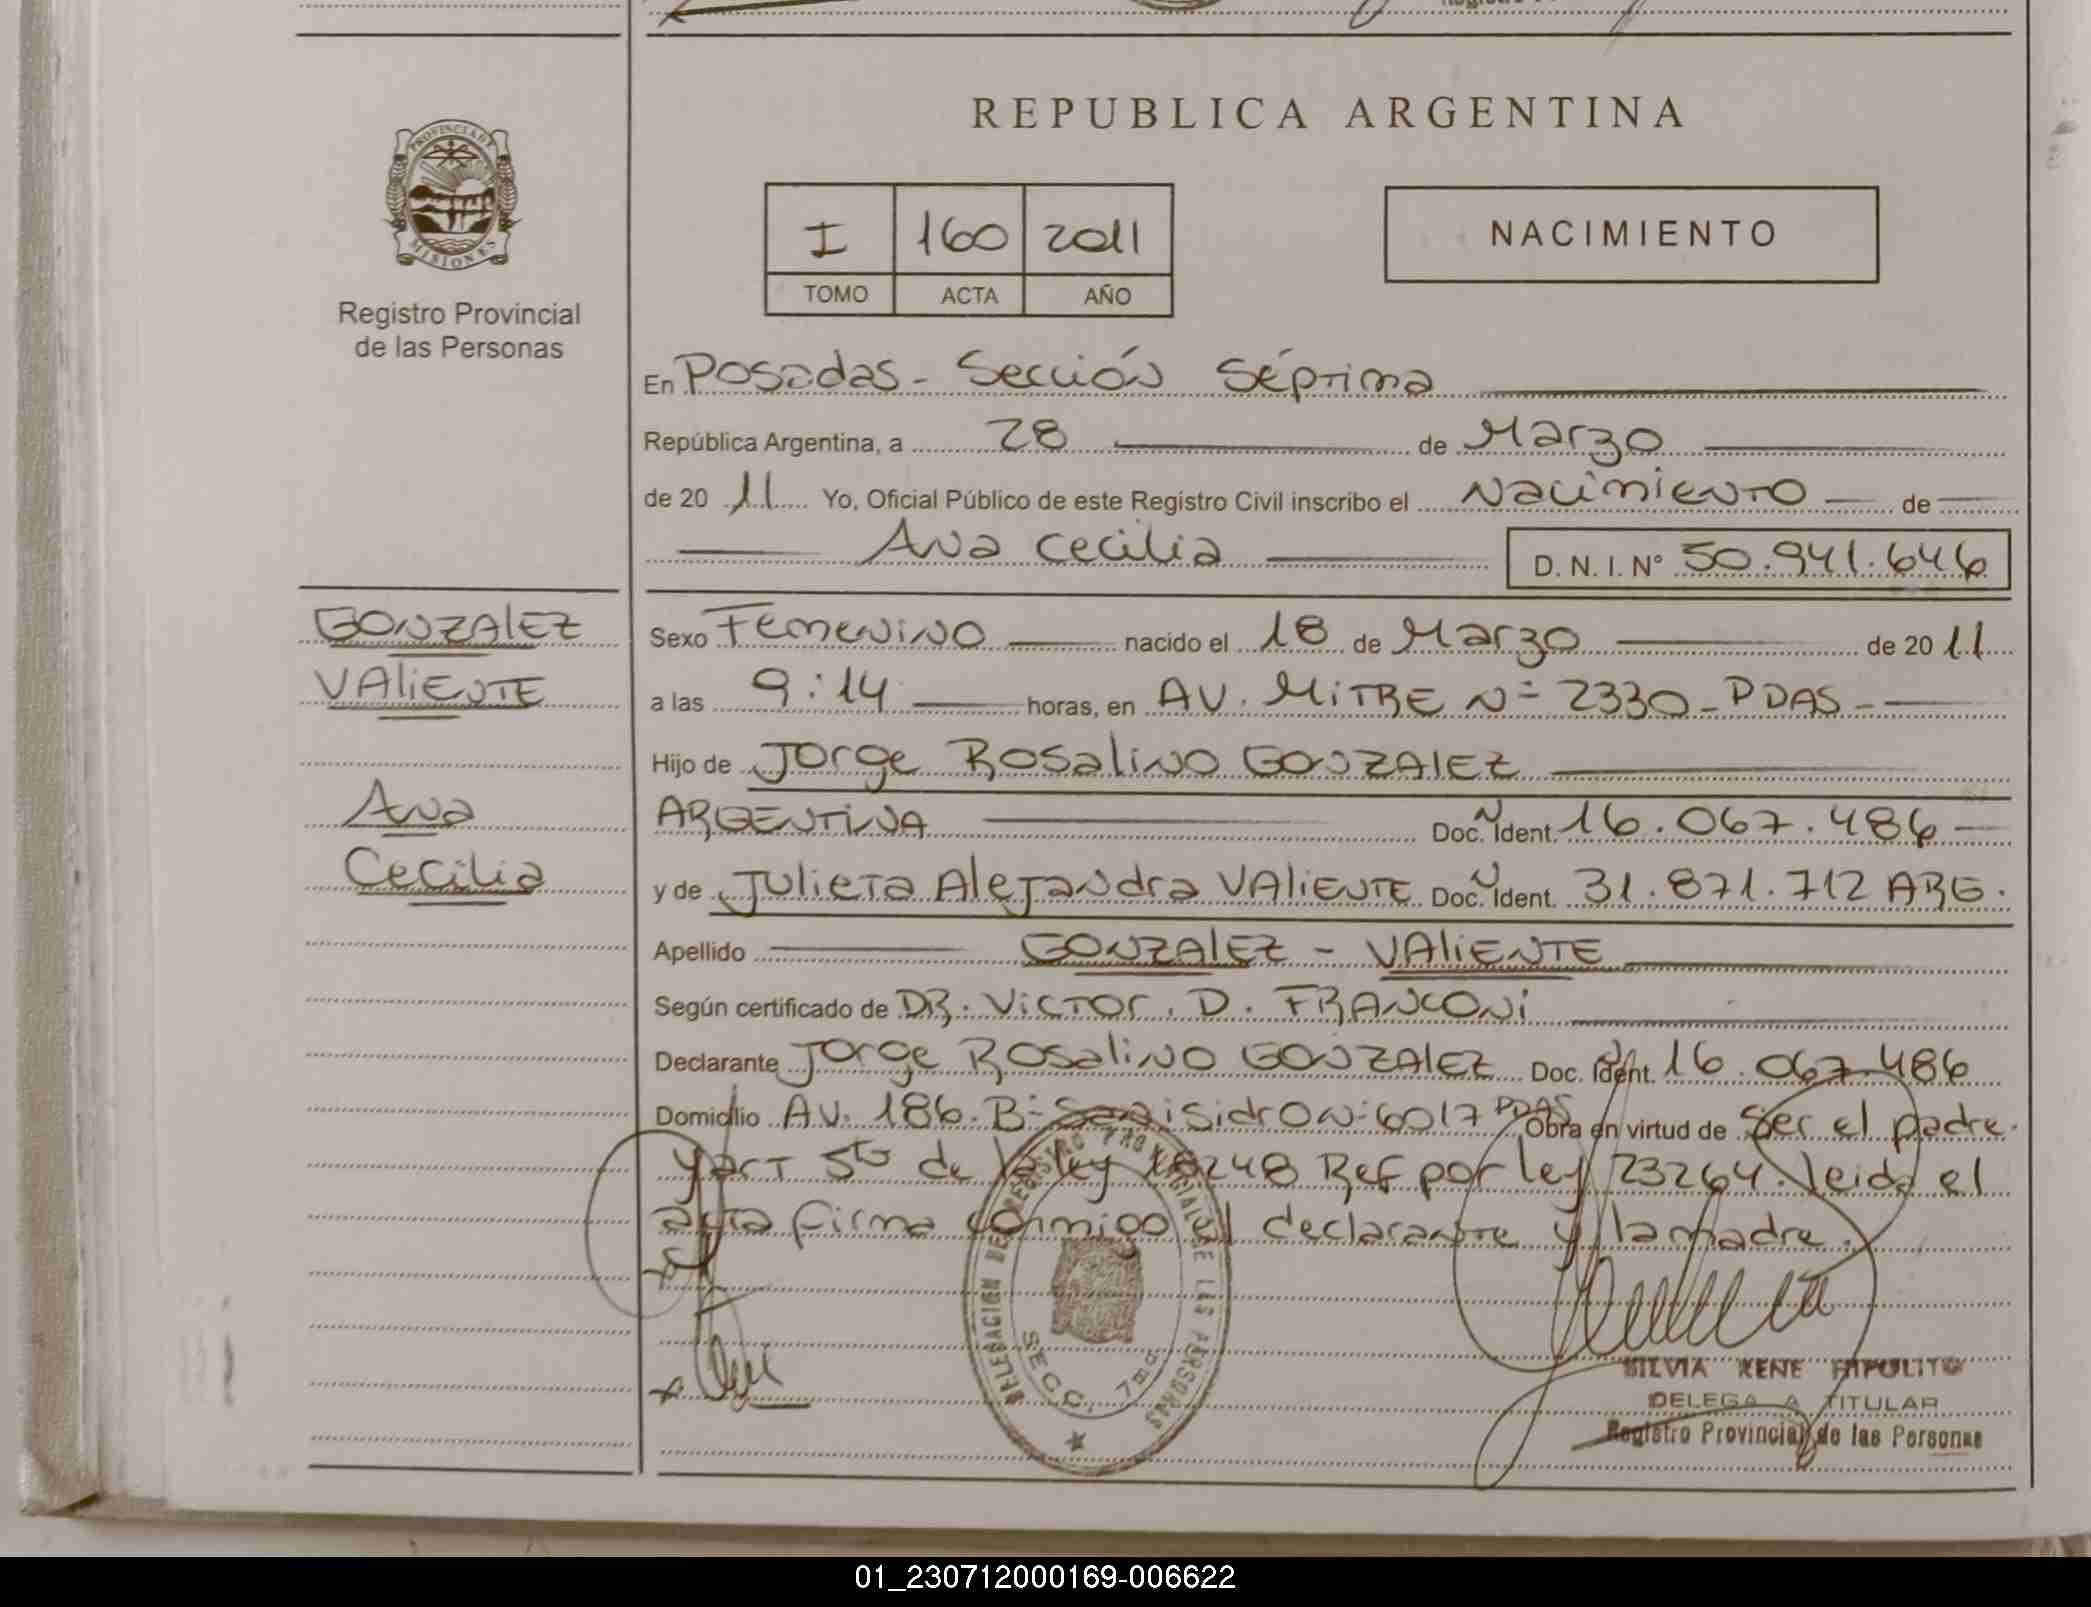 REPUBLICA ARGENTINA
PROVINCIA DE MISIONES
Registro Provincial
de las Personas
I 160 2011
TOMO ACTA AÑO
NACIMIENTO
En Posadas - Sección Séptima
República Argentina, a 28 de Marzo
de 20 11 Yo, Oficial Público de este Registro Civil inscribo el Nacimiento de
Ana Cecilia D. N. I. N° 50.941.646
GONZALEZ
VALIENTE
Ana
Cecilia
Sexo Femenino nacido el 18 de Marzo de 20 11
a las 9:14 horas, en AV. MITRE N° 2330 - PDAS -
Hijo de Jorge Rosalino GONZALEZ
ARGENTINA Doc. N Ident. 16.067.486
y de Julieta Alejandra VALIENTE Doc. N Ident. 31.871.712 ARG.
Apellido GONZALEZ - VALIENTE
Según certificado de DR. VICTOR. D. FRANCONI
Declarante Jorge Rosalino GONZALEZ Doc. Ident. 16.067.486
Domicilio AV. 186. B° San isidro N° 6017 PDAS Obra en virtud de Ser el padre.
y art 5to de la ley 18248 Ref por ley 23264. leida el
acta firma conmigo el declarante y la madre.
DELEGACION DEL REGISTRO PROVINCIAL DE LAS PERSONAS
SECC. 7ma
SILVIA RENE HIPOLITO
DELEGADA TITULAR
Registro Provincial de las Personas
01_230712000169-006622